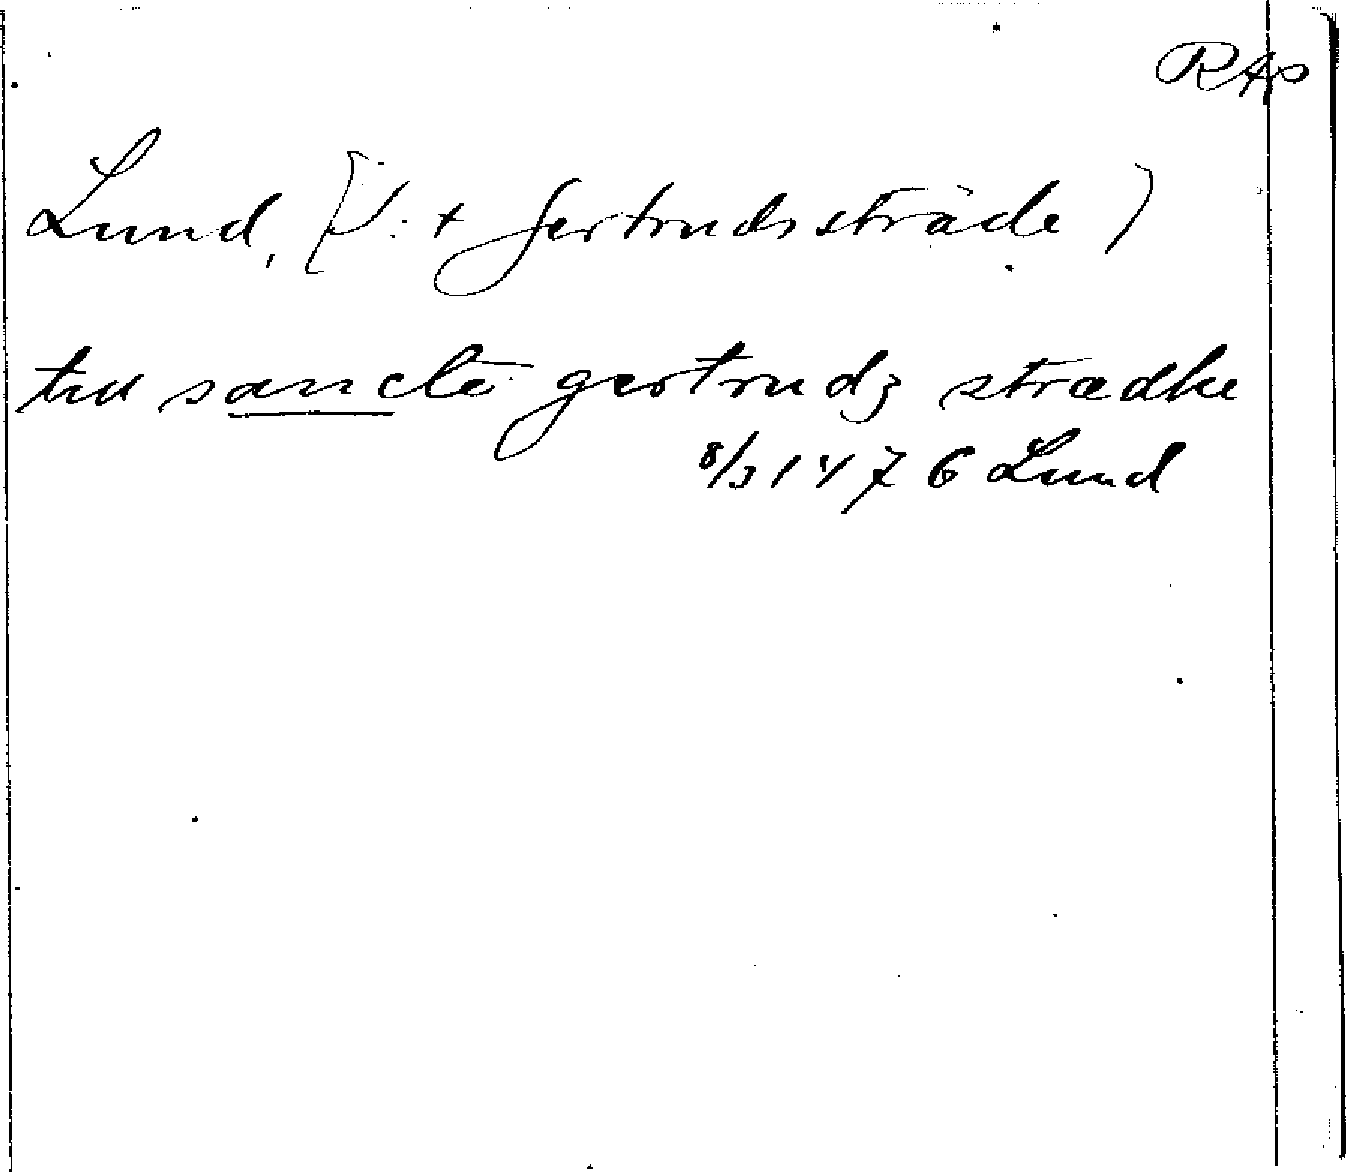 RAp
Lund, (S:t Gertrudsstråde)
till sancte gertrudz strædhe
8/3 1476 Lund